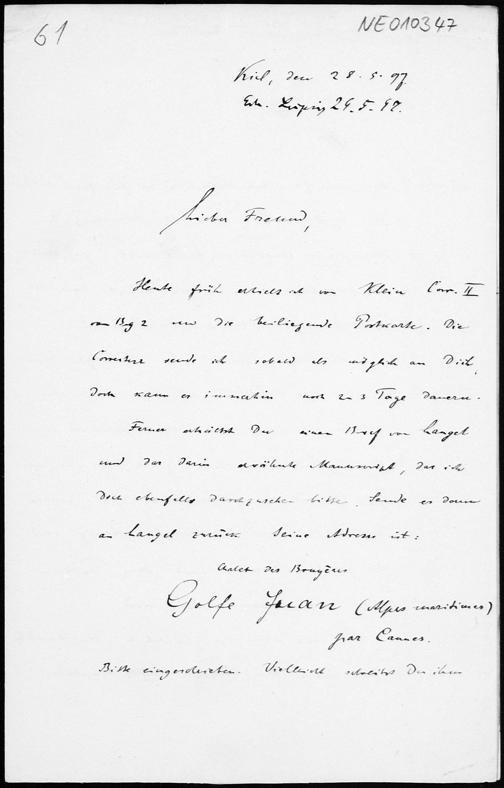 61
NE010347
Kiel, den 28.5.97
Erh. Leipzig 29.5.97.
Lieber Freund,
Heute früh erhielt ich von Klein Corr. II
von Bog 2 und die beiliegende Postkarte. Die
Correctur sende ich sobald als möglich an Dich,
doch kann es immerhin noch 2-3 Tage dauern.
Ferner erhältst Du einen Brief von Langel
und das darin erwähnte Manuscript, das ich
Dich ebenfalls durchzusehen bitte. Sende es dann
an Langel zurück. Seine Adresse ist:
Chalet des Bruyères
Golfe Juan (Alpes maritimes)
par Cannes.
Bitte eingeschrieben. Vielleicht schreibst Du ihm